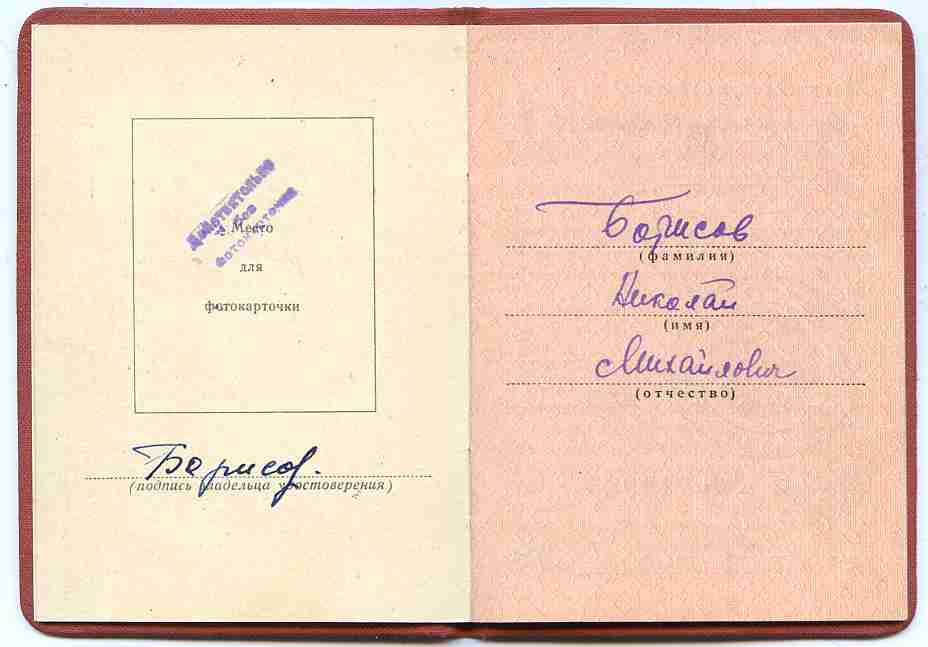 Действительно
без
фотокарточки
Место
для
фотокарточки
Борисов.
(подпись владельца удостоверения)
Борисов
(фамилия)
Николай
(имя)
Михайлович
(отчество)